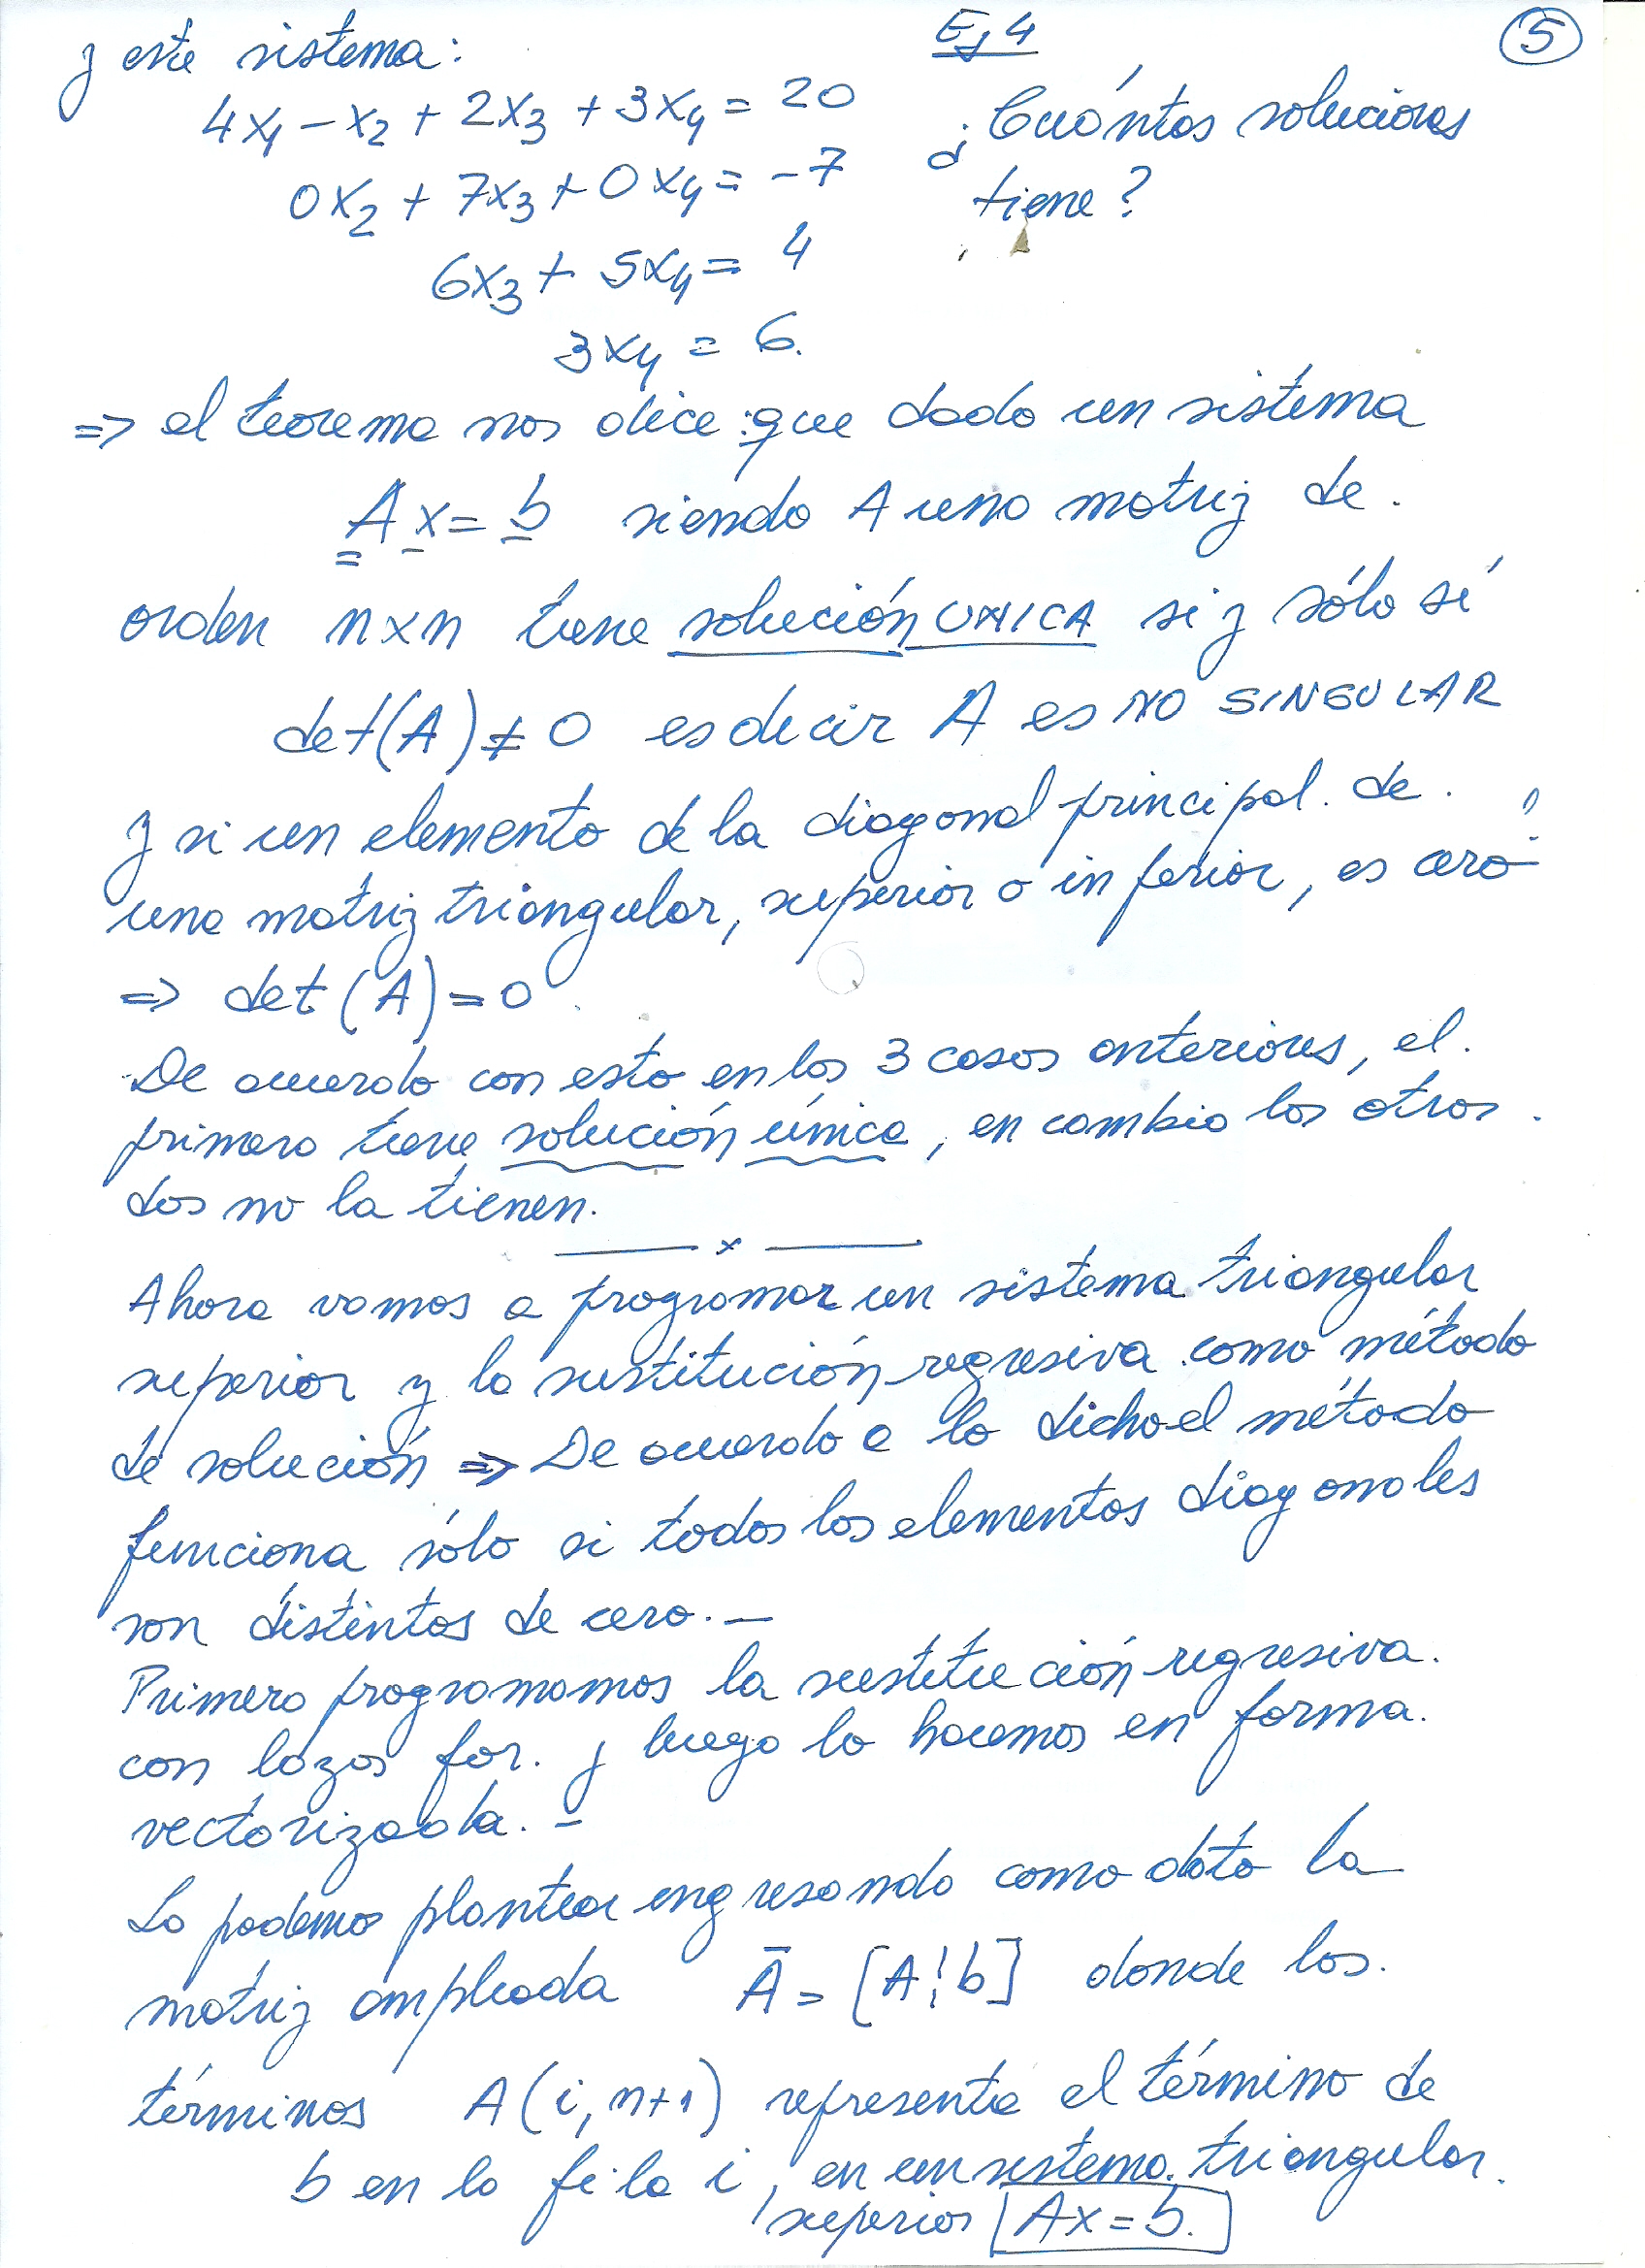 y este sistema:
Ej 4
5
4x1 - x2 + 2x3 + 3x4 = 20
¿Cuántas soluciones
0x2 + 7x3 + 0x4 = -7
tiene?
6x3 + 5x4 = 4
3x4 = 6.
=> el teorema nos dice: que dado un sistema
A x = b siendo A una matriz de.
orden n×n tiene solución UNICA si y sólo sí
det(A) ≠ 0 es decir A es NO SINGULAR
y si un elemento de la diagonal principal. de.
una matriz triangular, superior o inferior, es cero
=> det(A) = 0.
De acuerdo con esto en los 3 casos anteriores, el.
primero tiene solución única, en cambio los otros.
dos no la tienen.
——— x ———
Ahora vamos a programar un sistema triangular
superior y la sustitución regresiva como método
de solución => De acuerdo a lo dicho el método
funciona sólo si todos los elementos diagonales
son distintos de cero. —
Primero programamos la sustitución regresiva.
con lazos for. y luego lo hacemos en forma.
vectorizada. —
Lo podemos plantear ingresando como dato la
matriz ampliada Ā = [A¦b] donde los.
términos A(i, n+1) representa el término de
b en la fila i, en un sistema. triangular.
superior Ax = b.